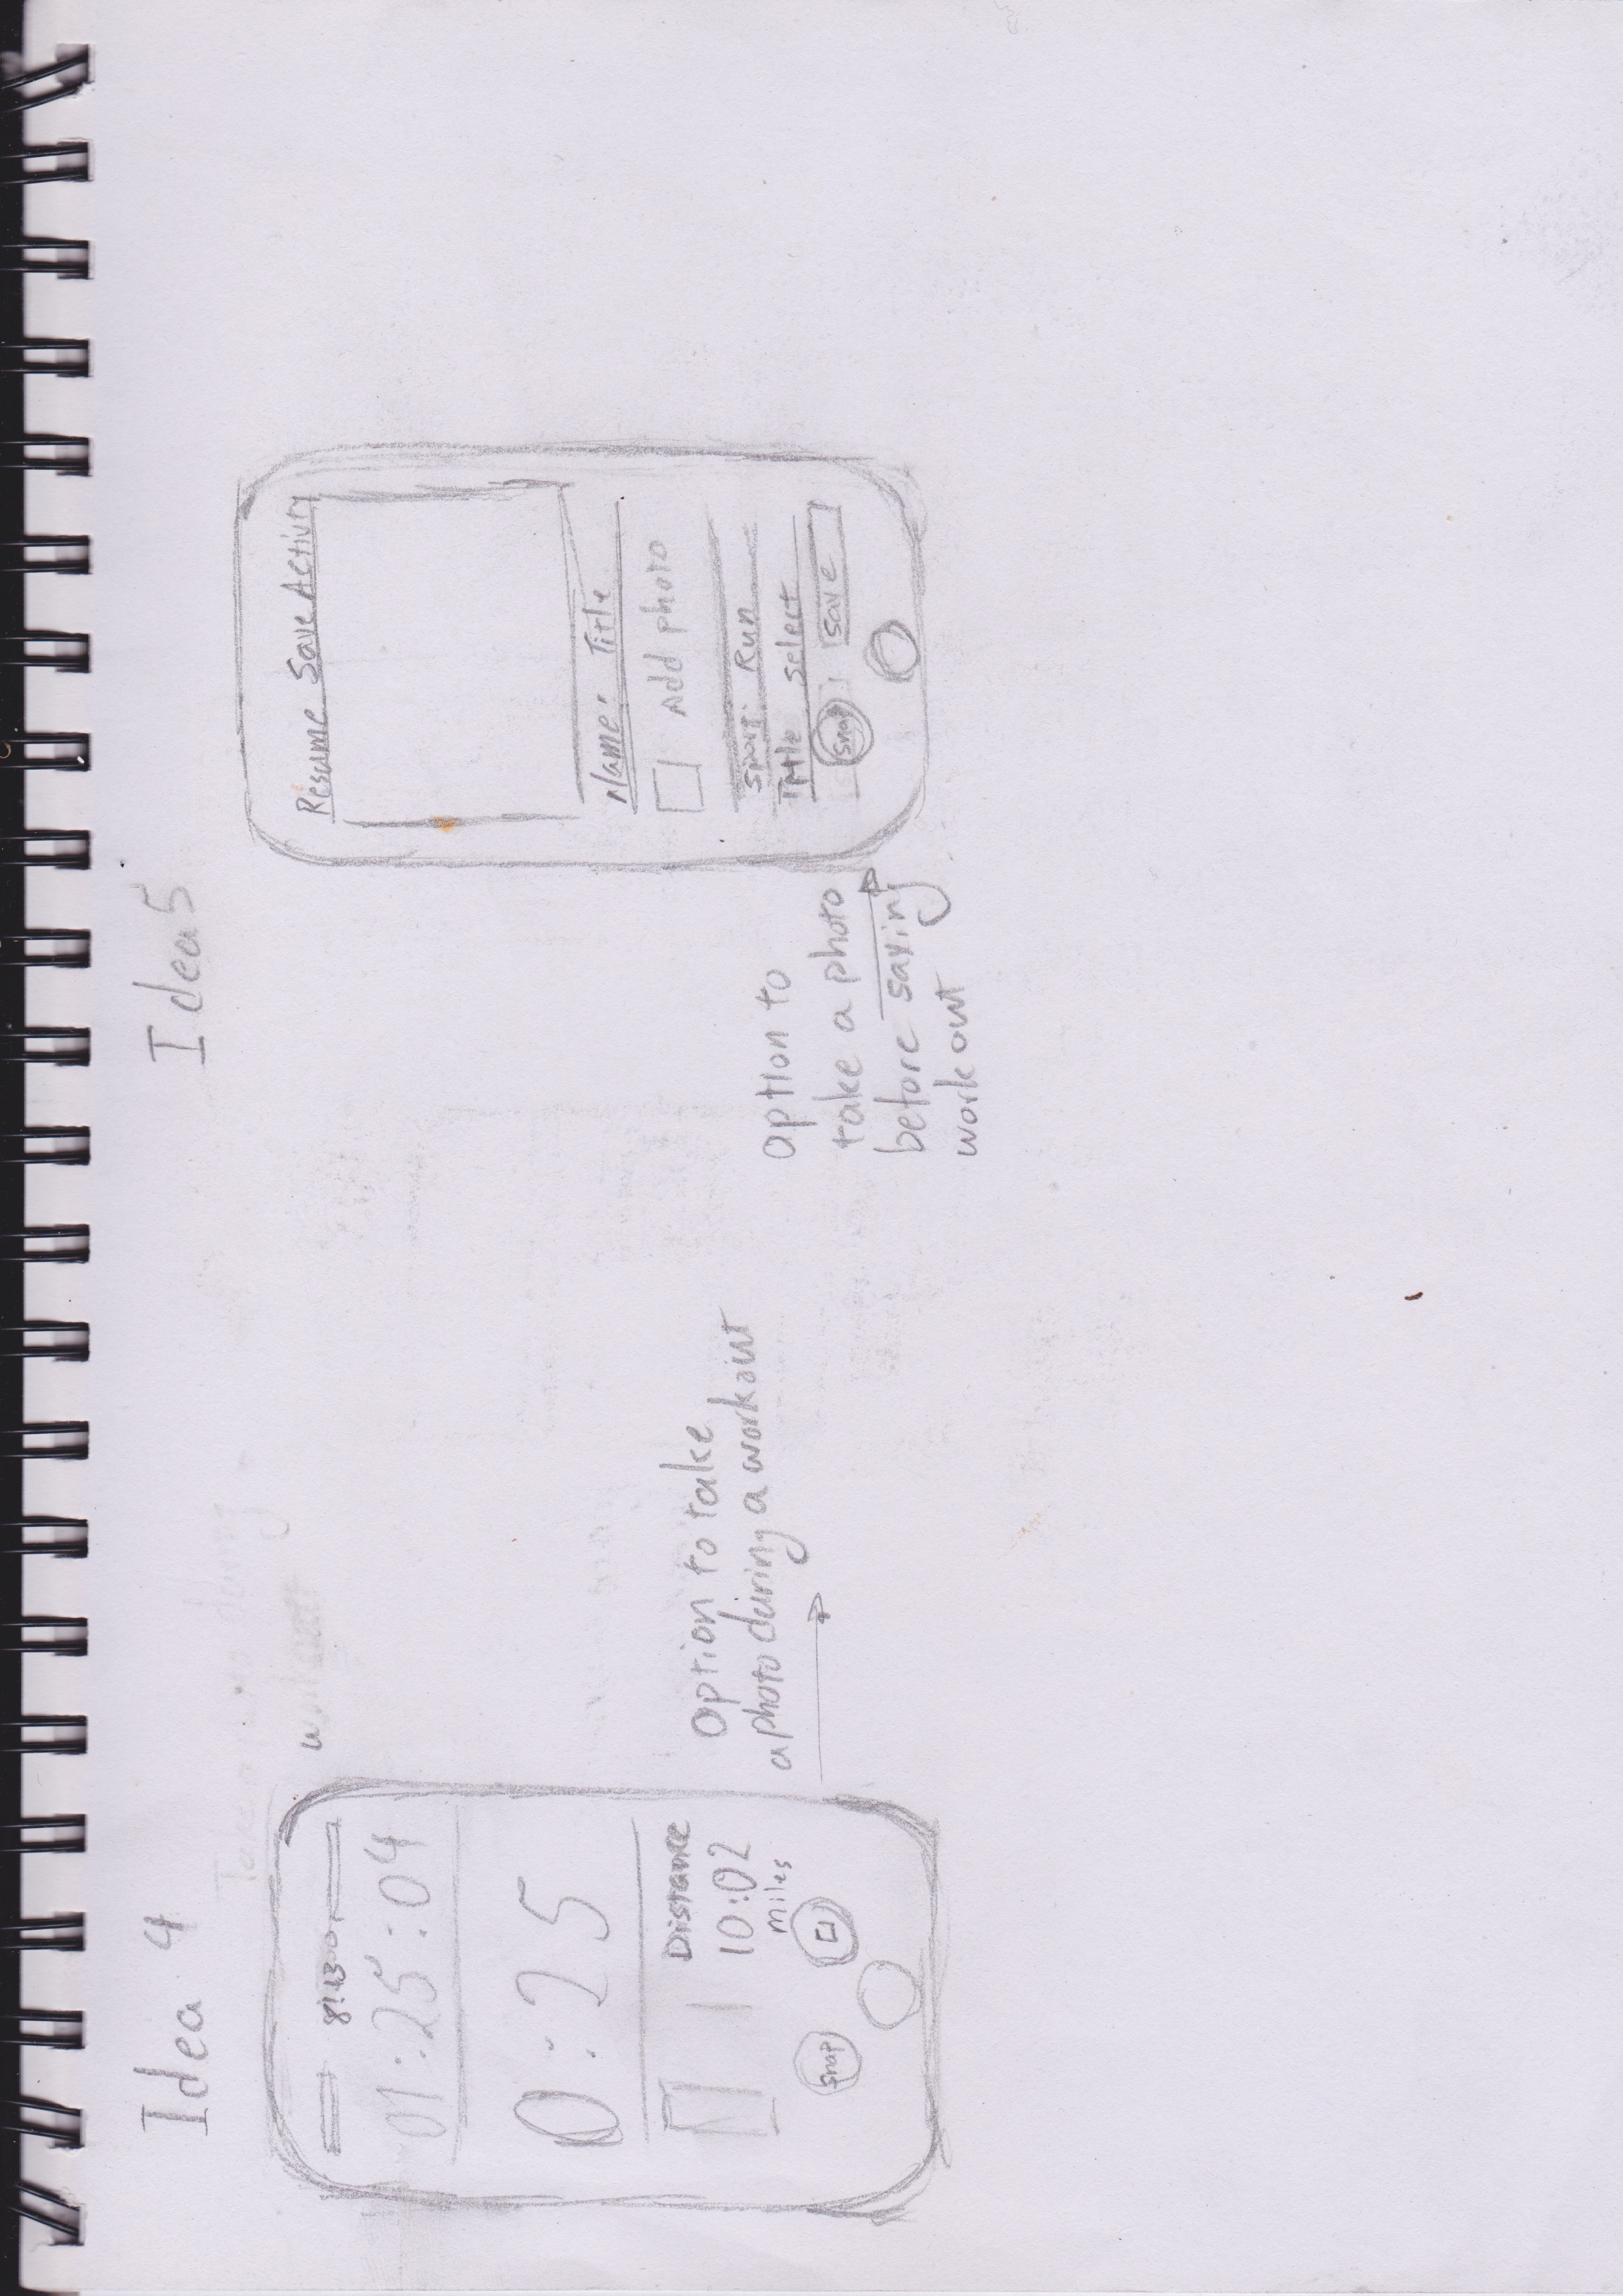 Idea 4
8:43
01:25:04
0:25
Distance
10:02
miles
Snap
Option to take
a photo during a workout
Idea 5
Resume Save Activity
Name: Title
Add photo
Sport: Run
Title select
Snap
Save
option to
take a photo
before saving
workout